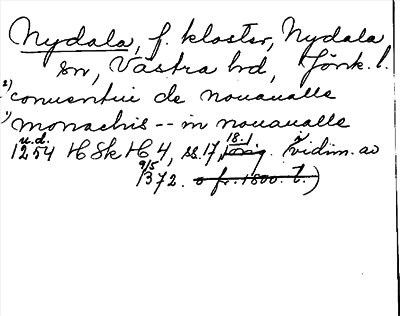 Nydala, f. kloster, Nydala
sn, Västra hd, Jönk. l.
2) conuentui de nouaualle
1) monachis -- in nouaualle
u.d. 18.1
1254 HSkH 4, ss. 17, (vidim. av
9/5
1372. o fr. 1800. t.)